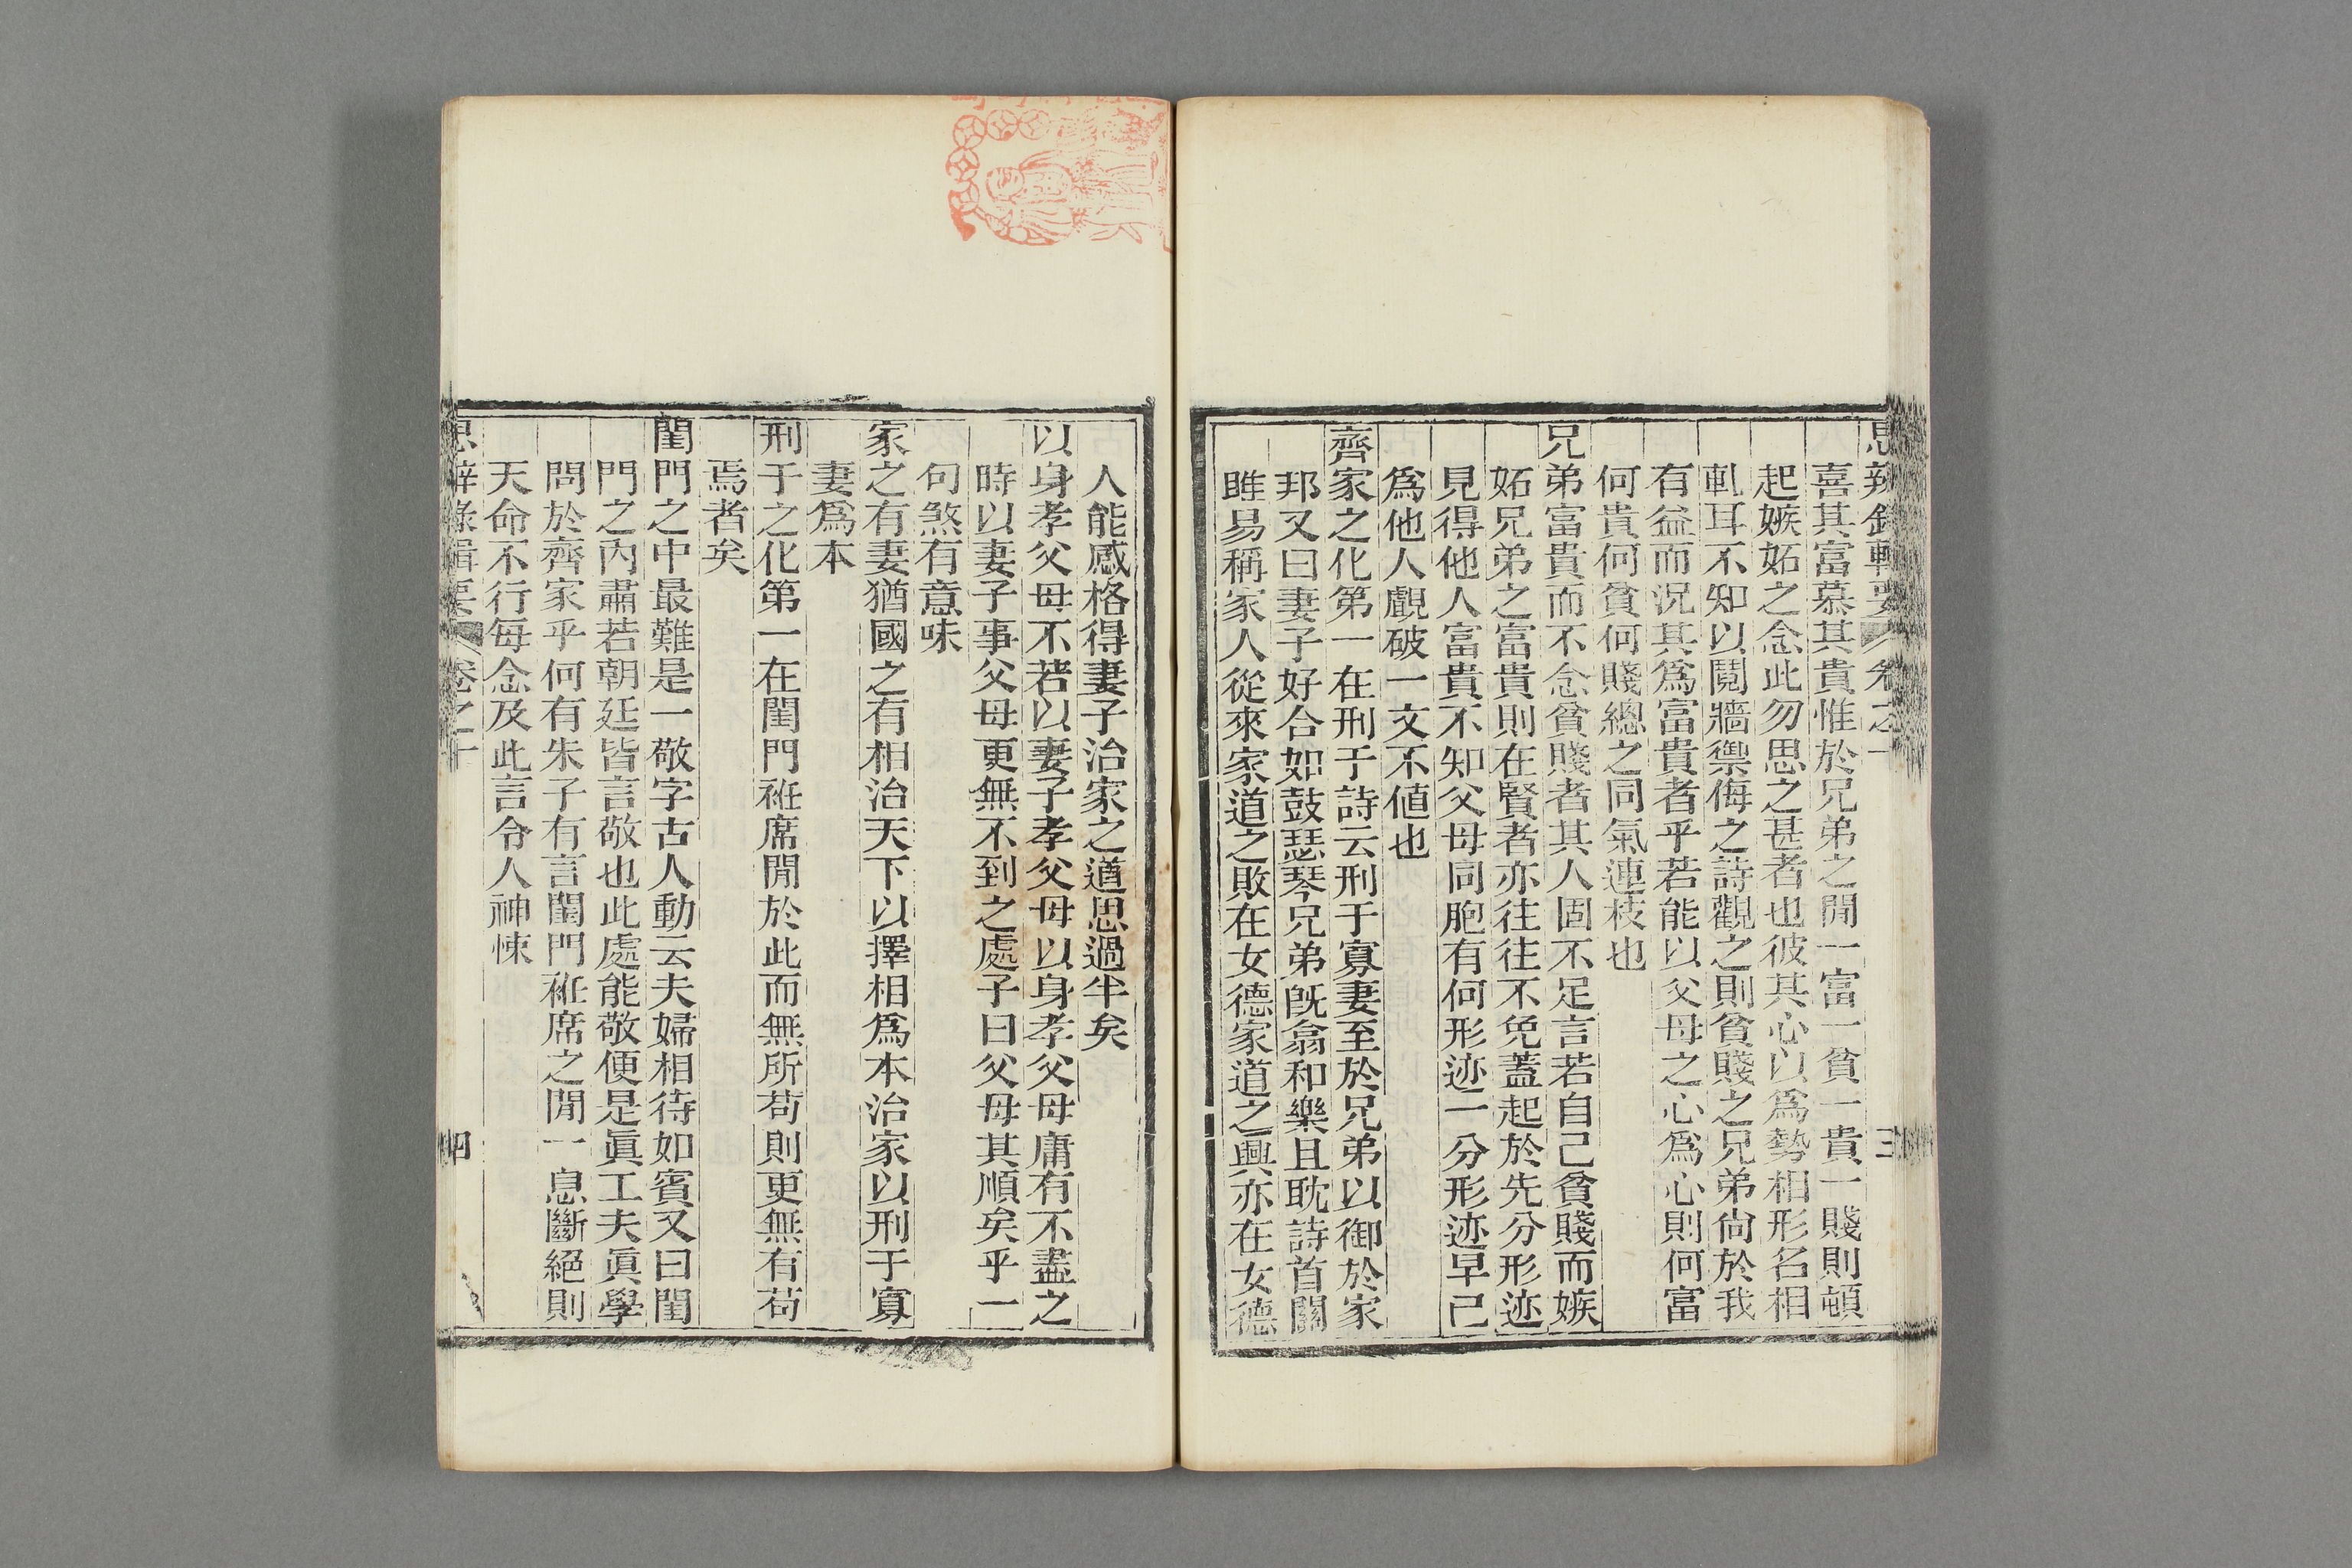 思辨錄輯要 卷之十 三
喜其富慕其貴惟於兄弟之閒一富一貧一貴一賤則頓
起嫉妬之念此勿思之甚者也彼其心以爲勢相形名相
軋耳不知以鬩牆禦侮之詩觀之則貧賤之兄弟尙於我
有益而況其爲富貴者乎若能以父母之心爲心則何富
何貴何貧何賤總之同氣連枝也
兄弟富貴而不念貧賤者其人固不足言若自己貧賤而嫉
妬兄弟之富貴則在賢者亦往往不免蓋起於先分形迹
見得他人富貴不知父母同胞有何形迹一分形迹早己
爲他人覷破一文不値也
齊家之化第一在刑于詩云刑于寡妻至於兄弟以御於家
邦又曰妻子好合如鼓瑟琴兄弟旣翕和樂且耽詩首關
雎易稱家人從來家道之敗在女德家道之興亦在女德
人能感格得妻子治家之道思過半矣
以身孝父母不若以妻子孝父母以身孝父母庸有不盡之
時以妻子事父母更無不到之處子曰父母其順矣乎一
句煞有意味
家之有妻猶國之有相治天下以擇相爲本治家以刑于寡
妻爲本
刑于之化第一在閨門袵席閒於此而無所苟則更無有苟
焉者矣
閨門之中最難是一敬字古人動云夫婦相待如賓又曰閨
門之內肅若朝廷皆言敬也此處能敬便是眞工夫眞學
問於齊家乎何有朱子有言閨門袵席之閒一息斷絕則
天命不行每念及此言令人神悚
思辨錄輯要 卷之十 四